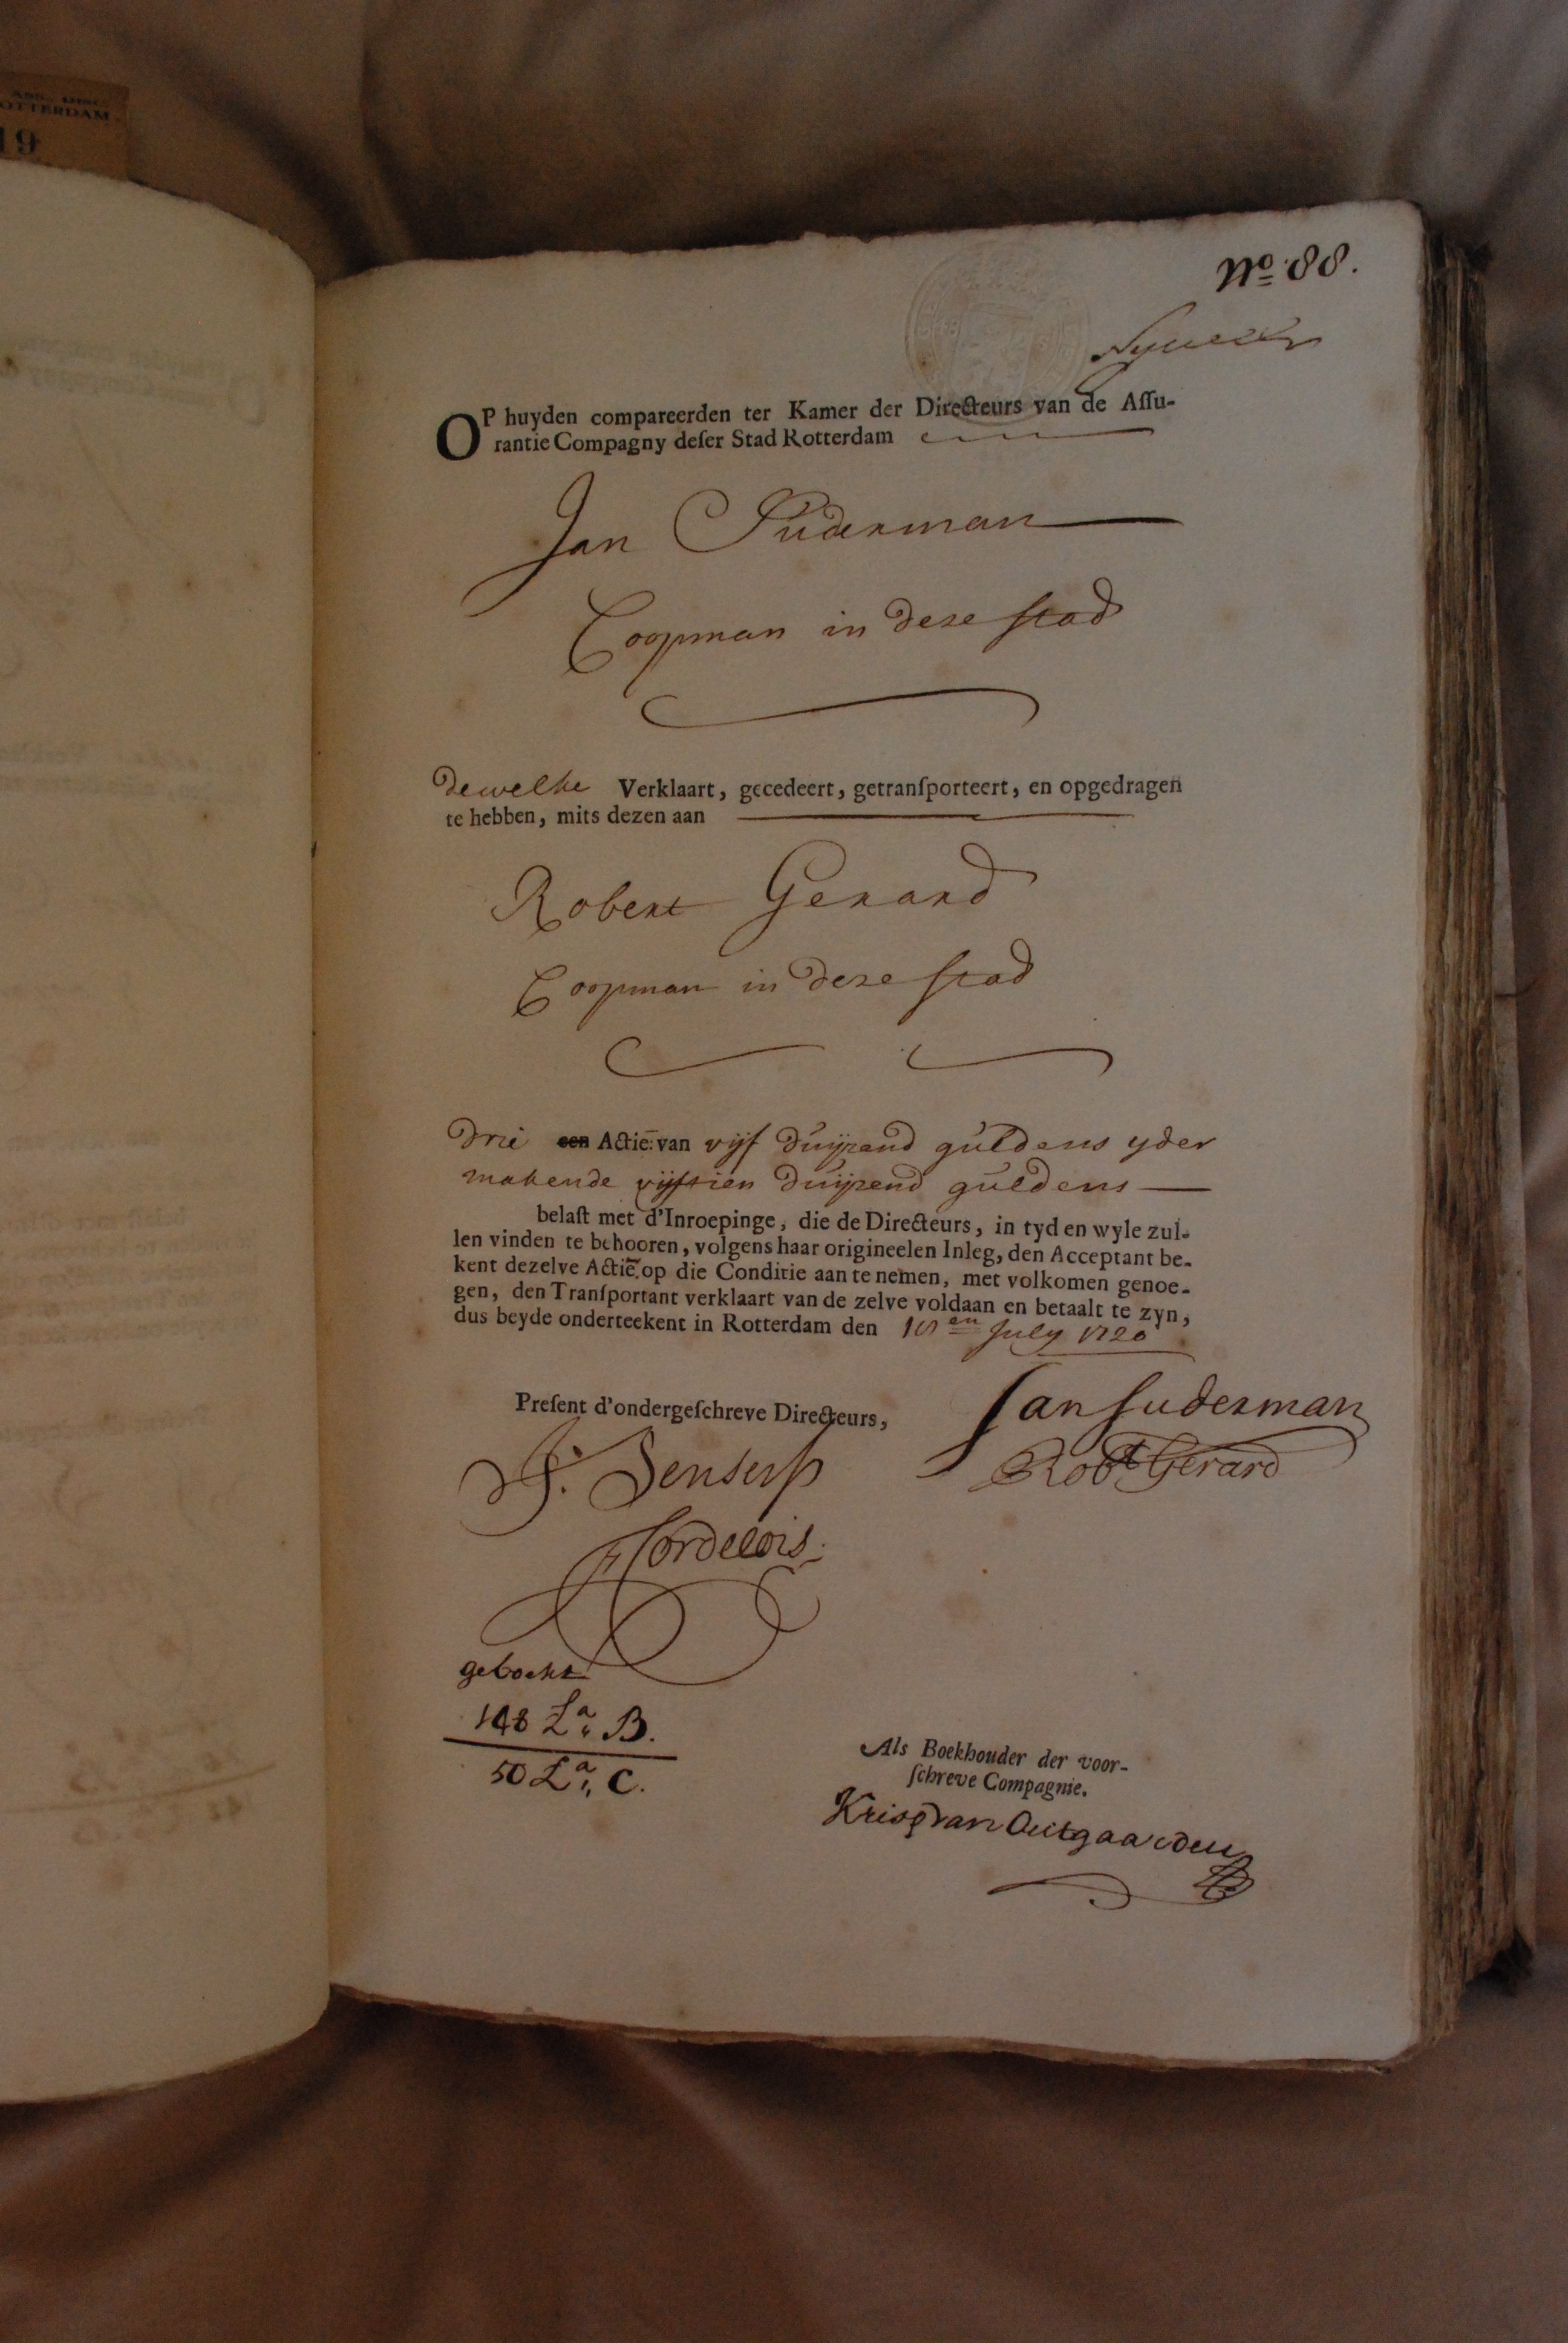 ROTTERDAM
19
No 88.
OP huyden compareerden ter Kamer der Directeurs van de Assu-
rantie Compagny deser Stad Rotterdam
Jan Suderman
Coopman in dese stad
dewelke Verklaart, gecedeert, getransporteert, en opgedragen
te hebben, mits dezen aan
Robert Gerard
Coopman in dese stad
drie een Actie: van vijf duijzend guldens yder
makende vijftien duijzend guldens
belast met d'Inroepinge, die de Directeurs, in tyd en wyle zul-
len vinden te behooren, volgens haar origineelen Inleg, den Acceptant be-
kent dezelve Actiē. op die Conditie aan te nemen, met volkomen genoe-
gen, den Transportant verklaart van de zelve voldaan en betaalt te zyn,
dus beyde onderteekent in Rotterdam den en July 1720
Present d'ondergeschreve Directeurs,
Jan Suderman
Robt Gerard
gebockt
148 La B.
50 La C.
Als Boekhouder der voor-
schreve Compagnie.
Krisp van Outgaarden